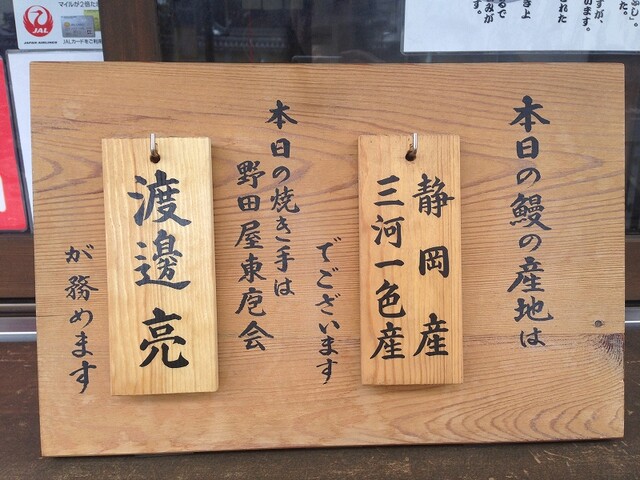 本日の鰻の産地は
静岡産
三河一色産
でございます
本日の焼き手は
野田屋東庖会
渡邊亮
が務めます
JAL
JAPAN AIRLINES
マイルが2倍た
JALカードをご利